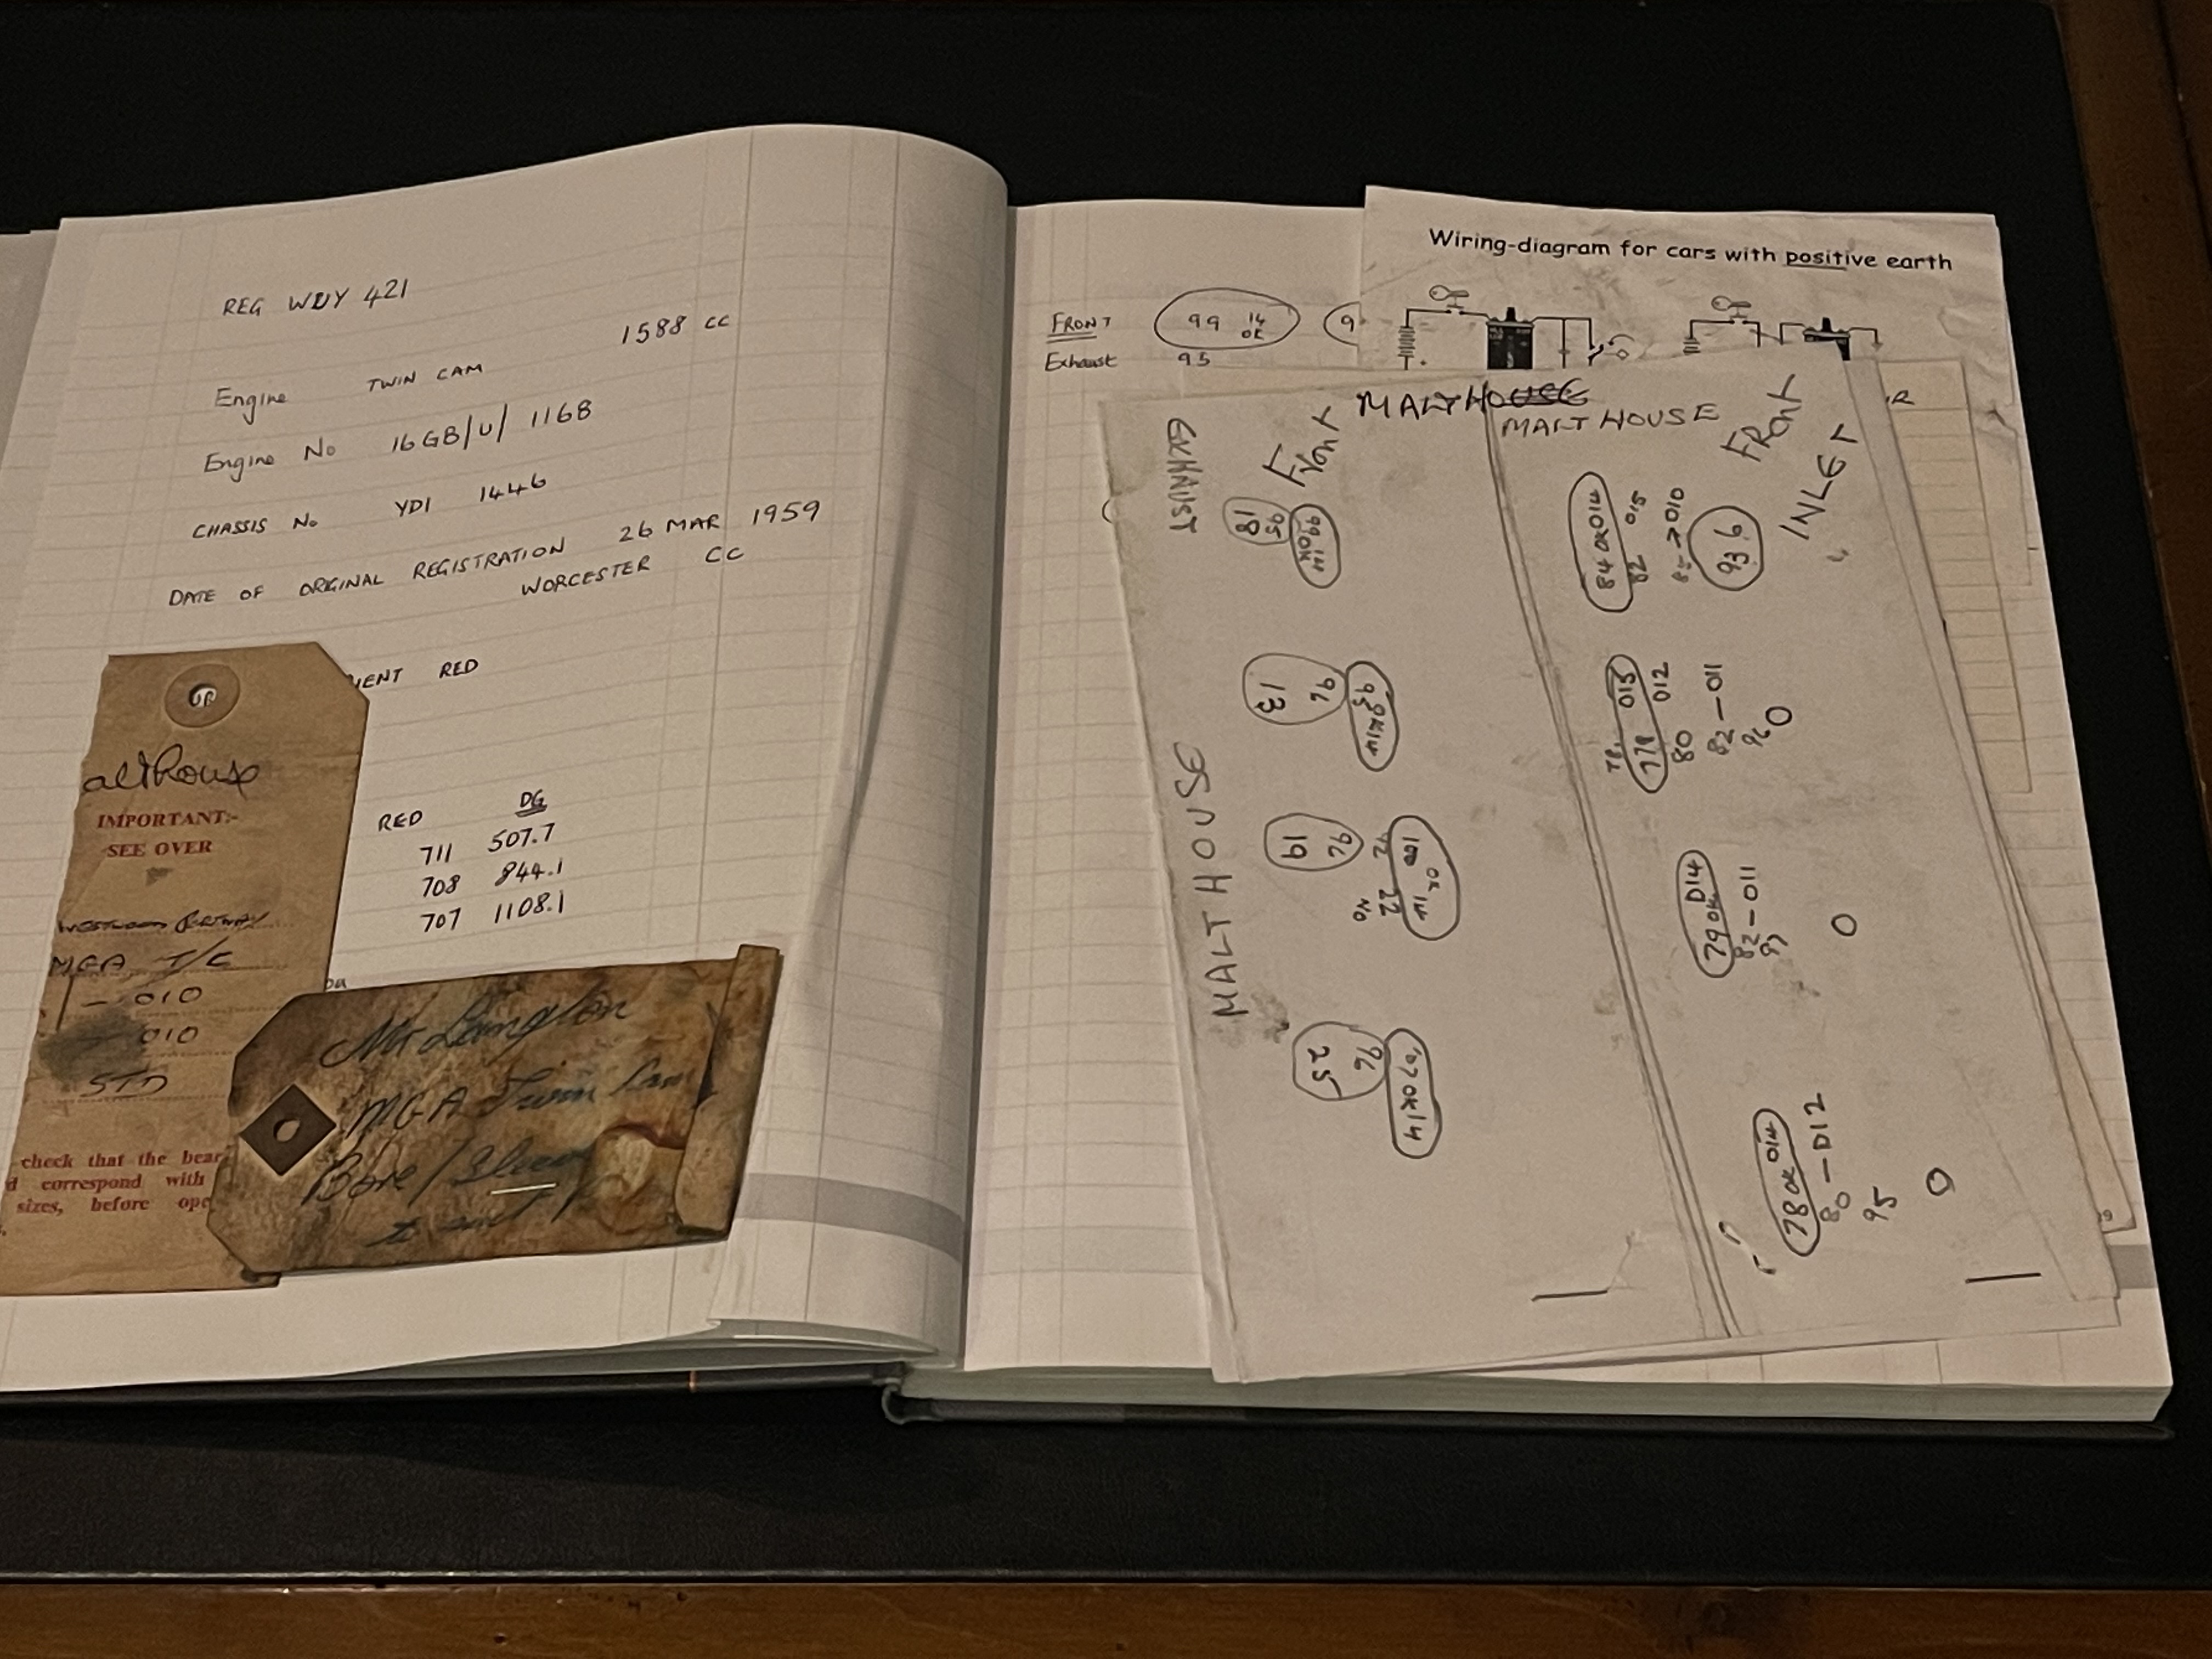 REG WDY 421
Engine TWIN CAM 1588 CC
Engine No 16GB/U/ 1168
CHASSIS No YD1 1446
DATE OF ORIGINAL REGISTRATION 26 MAR 1959
WORCESTER CC
IENT RED
RED DG
711 507.7
708 844.1
707 1108.1
althouse
IMPORTANT:-
SEE OVER
MGA T/C
- 010
- 010
STD
check that the bear
d correspond with
sizes, before ope
Mr Langton
MGA Twin Cam
Bore /
to suit
FRONT 99 14 OK 9
Exhaust 95
Wiring-diagram for cars with positive earth
MALTHOUSE
MALTHOUSE
EXHAUST
Front
99 14 OK
95
18
95 OK 14
96
13
100 OK 14
22 NO
96
19
97 OK 14
96
25
MALTHOUSE
FRONT
INLET
84 OK 014
82 015
→ 010
93 6
778 015
80 012
82 - 011
96
0
79 OK 014
82 - 011
97
0
78 OK 014
80 - 012
95
0